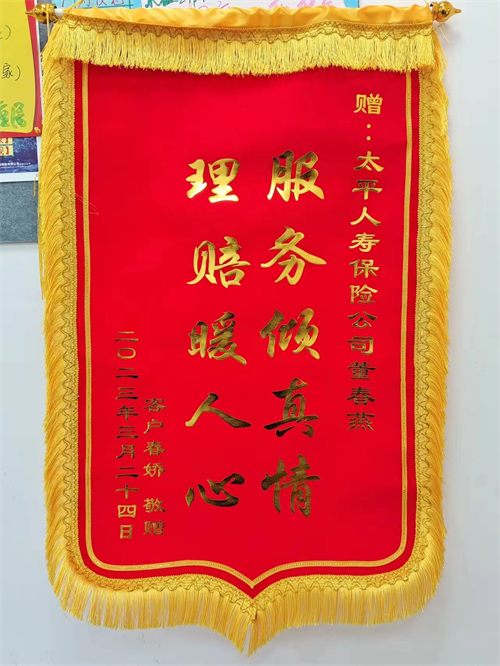 赠：太平人寿保险公司董春燕
服务倾真情
理赔暖人心
客户春娇 敬赠
二〇二三年三月二十四日
家）